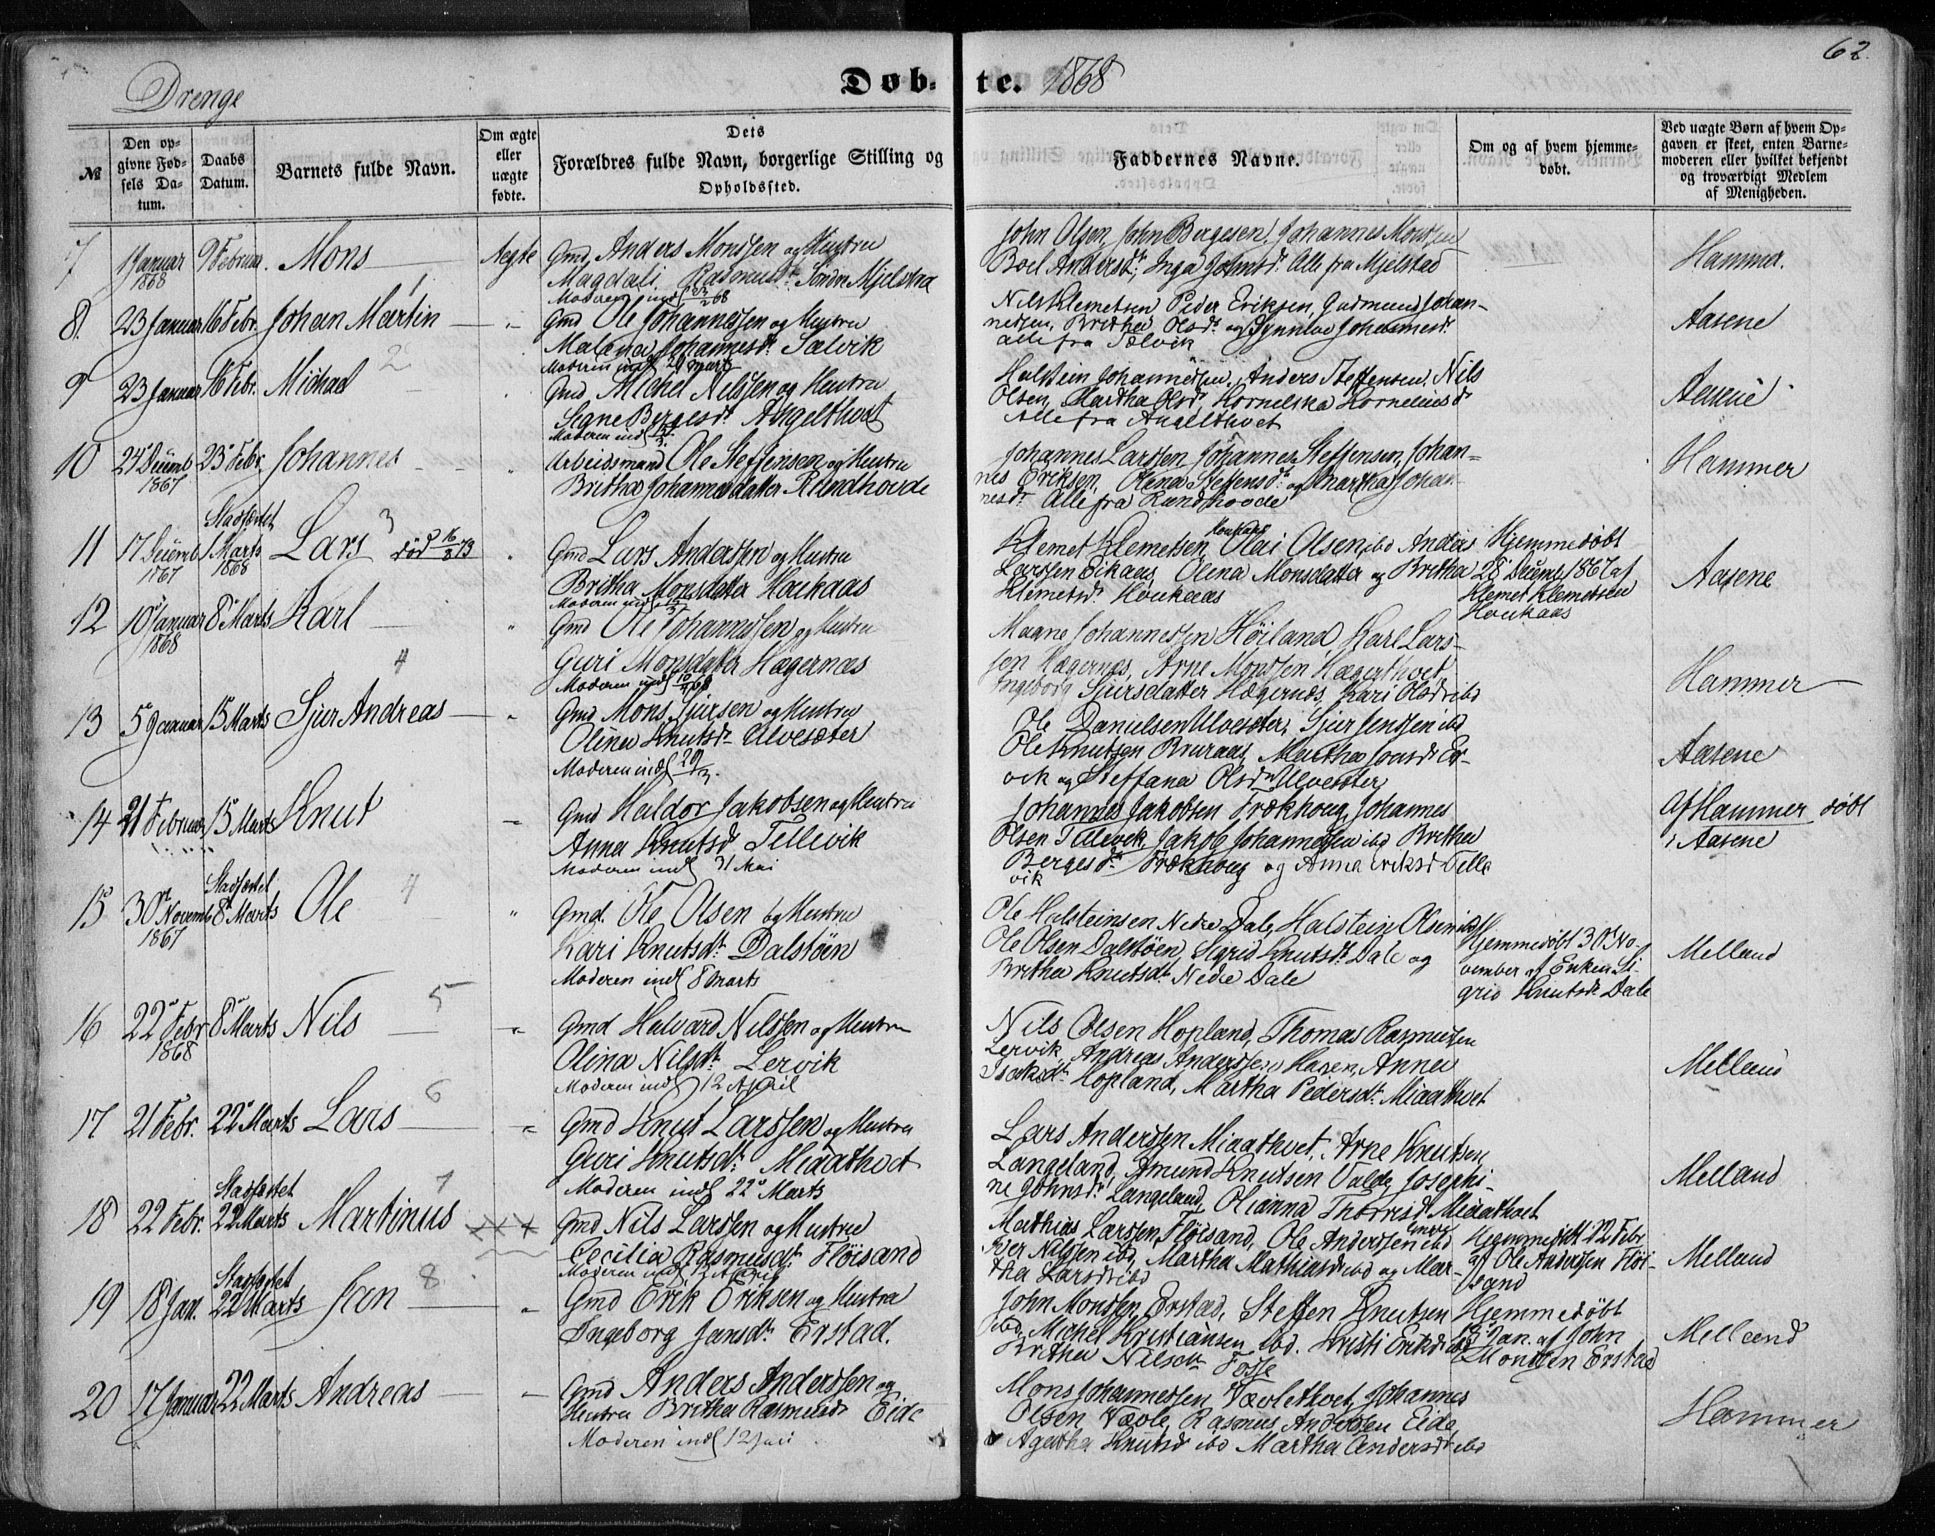 62.
Drenge
Døb- te. 1868
№
Den opgivne Fødsels Datum.
Daabs Datum.
Barnets fulde Navn.
Om ægte eller uægte fødte.
Dets Forældres fulde Navn, borgerlige Stilling og Opholdssted.
Faddernes Navne.
Om og af hvem hjemmedøbt.
Ved uægte Børn af hvem Opgaven er skeet, enten Barnemoderen eller hvilket bekjendt og troværdigt Medlem af Menigheden.
7 1 Januar 1868 9 Februar Mons Ægte
Gmd. Anders Monssen og Hustru
Magdali Rasmusdr. Søndre Mjelstad
John Olsen, John Bergesen, Johannes Monssen
Boel Andersdr. Inga Johnsdr. Alle fra Mjelstad
Hammer.
8. 23 Januar 16 Febr. Johan Martin 1 "
Gmd Ole Johannessen og Hustru
Malena Johannesdr. Sælvik
Moderen indl 29 Marts
Nils Klemetsen Peder Eriksen, Gudmund Johan-
nessen, Britha Olsdr. og Synneve Johannesdr.
alle fra Sælvik
Aasene
9 23 Januar 16 Febr. Michael 2
Gmd, Michel Nilssen og Hustru
Signe Bergesdr. Angelthvet
Moderen indl
Halstein Johannessen, Anders Steffensen, Nils
Olsen, Martha Olsdr, Kornelska Korneliusdr
Alle fra Angelthvet
Aasene
10 24 Decemb 1867 23 Febr Johannes "
Arbeidsmand Ole Steffensen og Hustru
Britha Johannesdatter Rundhovde
Johannes Larssen, Johannes Steffensen, Johan-
nes Eriksen, Olena Steffensdr og Martha Johan-
nesdr. Alle fra Rundhovde
Hammer
11 17 Decemb 1767 Stadfæstet 1 Marts 1868 Lars 3 død 16/3 73 "
Gmd Lars Anderssen og Hustru
Britha Monsdatter Haukaas
Klemet Klemetsen Houkaas Olai Olsen ibd Anders
Larssen Eikaas, Olena Monsdatter og Britha
Klemetsdr Houkaas
Hjemmedøbt
28 Decemb 1867 af
Klemet Klemetsen
Houkaas
Aasene
12 10 Januar 1868 8 Marts Karl "
Gmd Ole Johannessen og Hustru
Guri Monsdatter Hægernæs
Moderen indl
Magne Johannessen Høiland, Karl Lars-
sen Hægernæs, Arne Monssen Hægerthvet
Ingeborg Sjursdatter Hægernæs, Kari Olsdr ibd
Hammer
13 5 Januar 15 Marts Sjur Andreas 4 "
Gmd Mons Sjursen og Hustru
Olina Knutsdr Ulvesæter
Moderen indl 29/3.
Ole Danielsen Ulvesæter, Sjur Jenssen ibd
Ole Knutsen Bruraas, Martha
vik og Steffana Olsdr Ulvesæter
Aasene
14 21 Februar 15 Marts Knut "
Gmd Haldor Jakobsen og Hustru
Anna Knutsd Tellevik
Moderen indl 31 Mai
Johannes Jakobsen Trækhoug, Johannes
Olsen Tellevik, Jakob Johannessen ibd Britha
Bergesdr. Trækhoug og Anna Eriksd Telle
vik
Af Hammer døbt
i Aasene
15 30 Novemb 1867 Stadfæstet 8 Marts Ole 4 "
Gmd. Ole Olsen og Hustru
Kari Knutsdr. Dalstøen
Moderen indl 8 Marts
Ole Halsteinsen Nedre Dale, Halstein Olsen ibd
Ole Olsen Dalstøen, Sigrid Knutsdr. Dale og
Britha Knutsdr. Nedre Dale
Hjemmedøbt 30 No-
vember af Enken Si-
grid Knutsdr Dale
Melland
16 22 Febr 1868 8 Marts Nils 5 "
Gmd Halvard Nilssen og Hustru
Olina Nilsdr. Lervik
Moderen indl 12 April
Nils Olsen Hopland, Thomas Rasmussen
Lervik, Andreas Anderssen Hagen, Anna
Isaksdr. Hopland, Martha Pedersdr. Miaathvet
Melland
17 21 Febr. 22 Marts Lars 6 "
Gmd Knut Larssen og Hustru
Guri Knutsdr. Miaathvet
Moderen indl 22 Marts
Lars Anderssen Miaathvet, Arne Knutsen
Langeland, Amund Knutsen Valde, Josephi-
ne Johnsdr. Langeland, Olianna Thorrisd Miaathvet
Melland
18 22 Febr. Stadfæstet 22 Marts Martinus 7
Gmd Nils Larssen og Hustru
Cecilia Rasmusdr. Fløisand
Moderen indl 12 April
Mathias Larssen Fløisand, Ole Anderssen ibd
Peder Nilssen ibd, Martha Mathiasdr ibd og Mar-
tha Larsdr ibd
Hjemmedøbt 22 Febr
af Ole Anderssen Fløi-
sand
Melland
19 18 Jan. Stadfæstet 22 Marts Jan 8 "
Gmd Erik Eriksen og Hustru
Ingeborg Jansdr. Erstad.
John Monssen Erstad, Steffen Knutsen
ibd, Michel Kristiansen ibd. Kristi Eriksd ibd
Britha Nilsdr Fosse
Hjemmedøbt
Jan. af John
Monssen Erstad
Melland
20 17 Januar 22 Marts Andreas —
Gmd Anders Anderssen og
Hustru Britha Rasmusdr Eide
Moderen indl 12 Juli
Mons Johannessen Vævlethvet, Johannes
Olsen Vævle, Rasmus Anderssen Eide
Agatha Knutsd ibd Martha Andersdr ibd
Hammer